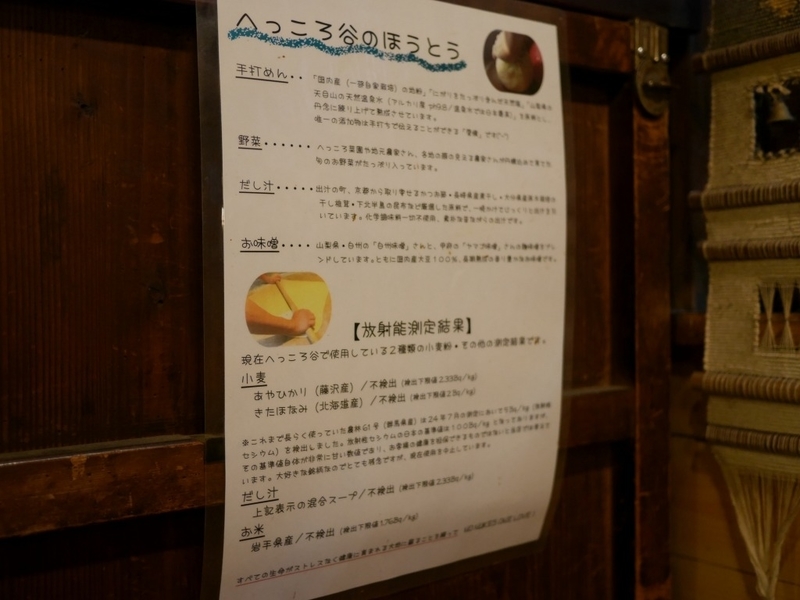 へっころ谷のほうとう
手打めん・・「国内産(一部自家栽培)の地粉」「にがりをたっぷり含んだ天然塩」「山梨県の
天白山の天然温泉水
丹念に練り上げて熟成させています。
唯一の添加物は手打ちで伝えることができる「愛情」です
野菜・・・・・・へっころ菜園や地元農家さん、各地の顔の見える農家さんが
旬のお野菜がたっぷり入っています。
だし汁・・・・・出汁の町、京都から取り寄せるかつお節・長崎県産煮干し・大分県産
干し椎茸・下北半島の昆布など厳選した素材で、一晩かけてじっくりと出汁を引
いています。化学調味料一切不使用、
お味噌・・・・山梨県・白州の「白州味噌」さんと、
ンドしています。ともに国内産大豆100%、長期熟成の香り豊かなお味噌です。
【放射能測定結果】
現在へっころ谷で使用している2種類の小麦粉・その他の測定結果です。
小麦
あやひかり(藤沢産)/不検出(検出下限値2.33Bq/kg)
きたほなみ(北海道産)/不検出(検出下限値2Bq/kg)
※これまで長らく使っていた農林61号(群馬県産)は24年7月の測定において
セシウム)を検出しました。放射性セシウムの日本の基準値は100Bq/kgとなっておりますが、
その基準値自体が非常に甘い数値であり、お客様の健康を担保できるものではないと当店では
います。大好きな銘柄なのでとても残念ですが、現在使用を中止しています。
だし汁
上記表示の混合スープ/不検出(検出下限値2.33Bq/kg)
お米
岩手県産/不検出(検出下限値1.76Bq/kg)
すべての生命がストレスなく健康に